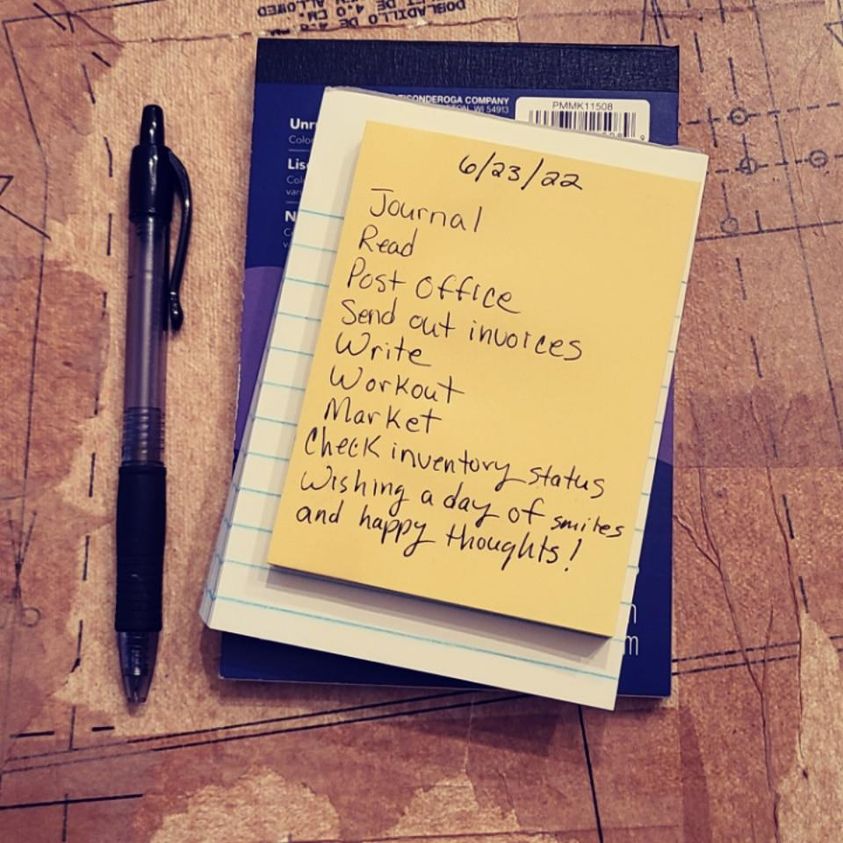 DOBLADILLO DE 4.0 CM.
ALLOWED
TICONDEROGA COMPANY
WI 54913
PMMK11508
6/23/22
Journal
Read
Post Office
Send out invoices
Write
Workout
Market
Check inventory status
Wishing a day of smiles
and happy thoughts!